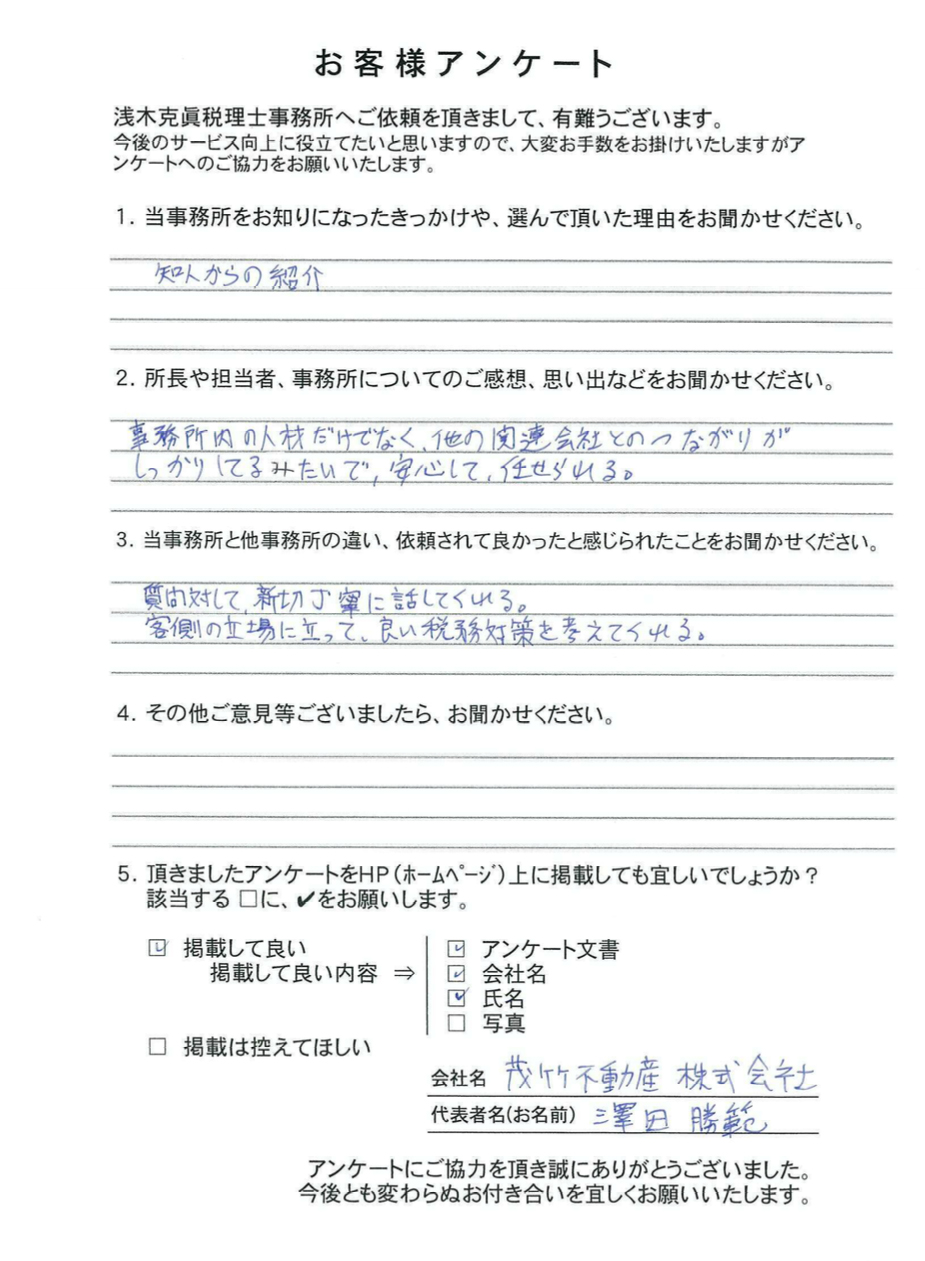 お客様アンケート
浅木克眞税理士事務所へご依頼を頂きまして、有難うございます。
今後のサービス向上に役立てたいと思いますので、大変お手数をお掛けいたしますがア
ンケートへのご協力をお願いいたします。
1. 当事務所をお知りになったきっかけや、選んで頂いた理由をお聞かせください。
知人からの紹介
2. 所長や担当者、事務所についてのご感想、思い出などをお聞かせください。
事務所内の人材だけでなく、他の関連会社とのつながりが
しっかりしてるみたいで、安心して、任せられる。
3. 当事務所と他事務所の違い、依頼されて良かったと感じられたことをお聞かせください。
質問対して、新切丁寧に話してくれる。
客側の立場に立って、良い税務対策を考えてくれる。
4. その他ご意見等ございましたら、お聞かせください。
5. 頂きましたアンケートをHP(ホームページ)上に掲載しても宜しいでしょうか?
該当する □に、✔をお願いします。
☑ 掲載して良い
掲載して良い内容 ⇒
☑ アンケート文書
☑ 会社名
☑ 氏名
□ 写真
□ 掲載は控えてほしい
会社名 茂竹不動産 株式会社
代表者名(お名前) 澤田 勝範
アンケートにご協力を頂き誠にありがとうございました。
今後とも変わらぬお付き合いを宜しくお願いいたします。